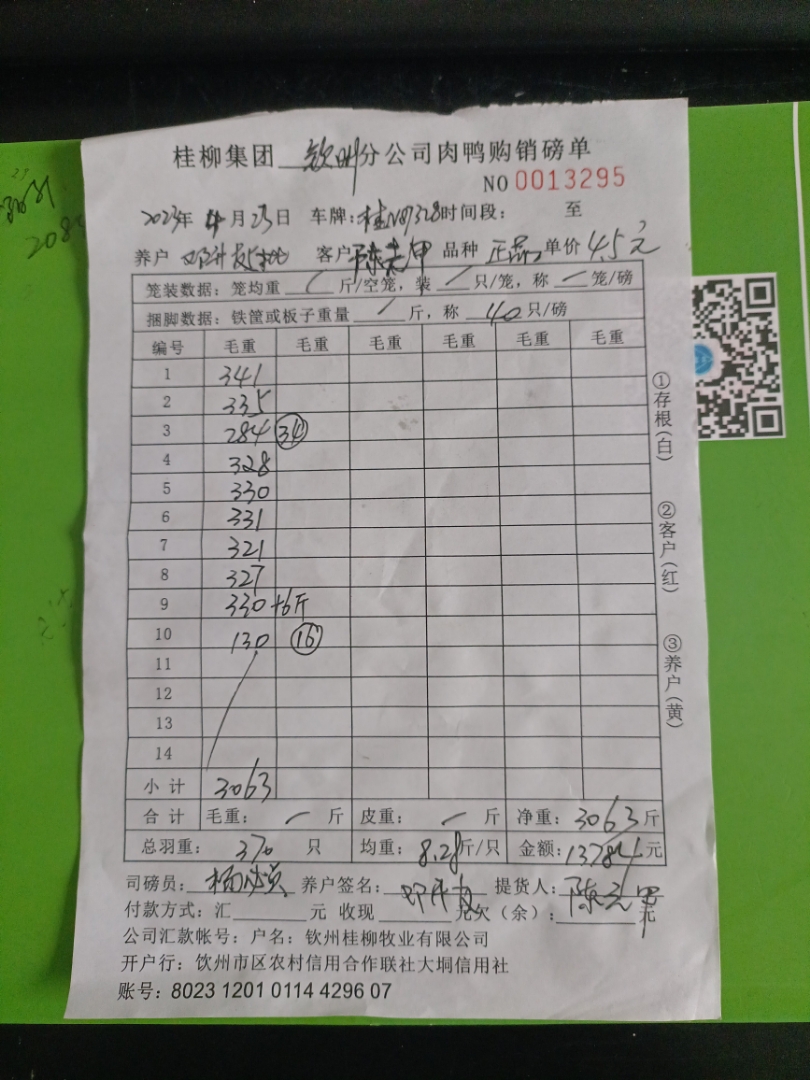 桂柳集团 钦州 分公司肉鸭购销磅单
NO 0013295
2023年 4月 23日 车牌:桂N07328 时间段: 至
养户 客户 陈光甲 品种 正品 单价 4.5元
笼装数据:笼均重 / 斤/空笼,装 / 只/笼,称 / 笼/磅
捆脚数据:铁筐或板子重量 / 斤,称 40 只/磅
编号 毛重 毛重 毛重 毛重 毛重 毛重
1 341
2 335
3 284 34
4 328
5 330
6 331
7 321
8 327
9 330 +6斤
10 130 16
11
12
13
14
小计 3063
合计 毛重: / 斤 皮重: / 斤 净重: 3063 斤
总羽重: 370 只 均重: 8.28 斤/只 金额: 13784 元
司磅员: 养户签名: 提货人:
付款方式:汇 元 收现 元欠(余): 元
公司汇款帐号:户名:钦州桂柳牧业有限公司
开户行:饮州市区农村信用合作联社大垌信用社
账号:8023 1201 0114 4296 07
①存根(白)
②客户(红)
③养户(黄)